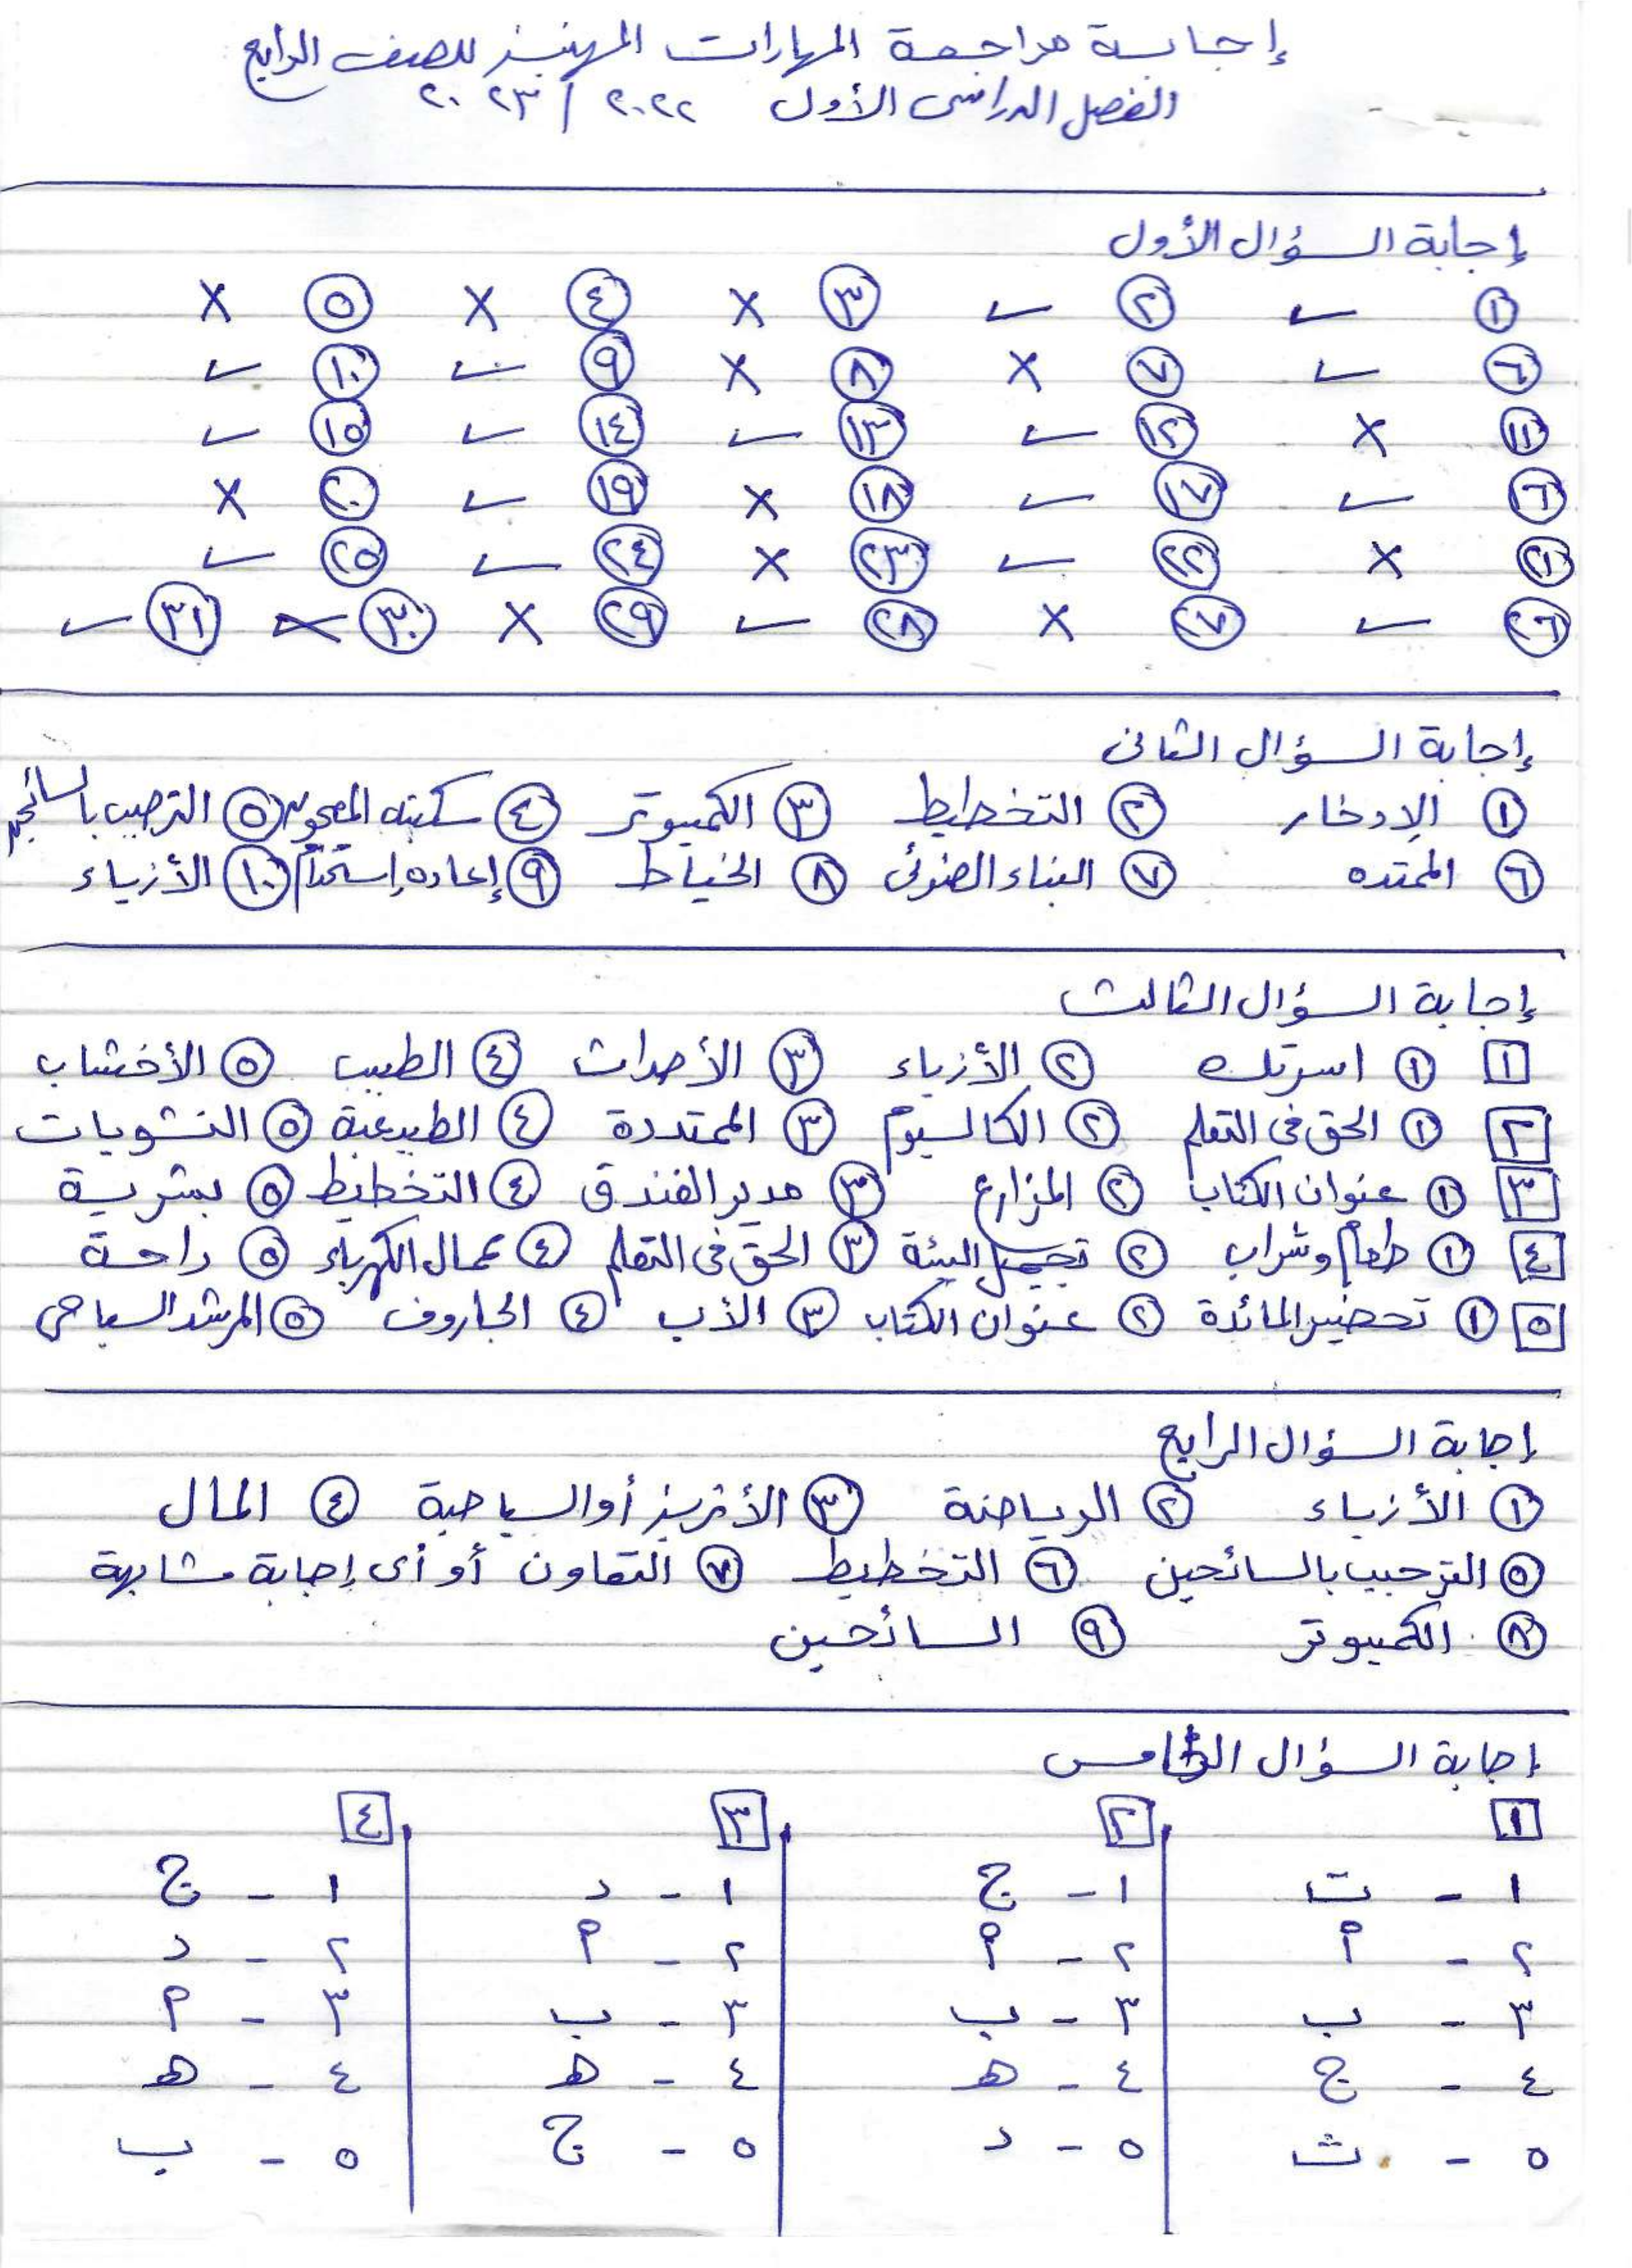 إجابة مراجعة المهارات المهنية للصف الرابع
الفصل الدراسى الأول ٢٠٢٢ / ٢٠٢٣
إجابة السؤال الأول
١ ✓ ٢ ✓ ٣ × ٤ × ٥ ×
٦ ✓ ٧ × ٨ × ٩ ✓ ١٠ ✓
١١ × ١٢ ✓ ١٣ ✓ ١٤ ✓ ١٥ ✓
١٦ ✓ ١٧ ✓ ١٨ × ١٩ ✓ ٢٠ ×
٢١ × ٢٢ ✓ ٢٣ × ٢٤ ✓ ٢٥ ✓
٢٦ ✓ ٢٧ × ٢٨ ✓ ٢٩ × ٣٠ × ٣١ ✓
إجابة السؤال الثانى
١ الإدخار ٢ التخطيط ٣ الكمبيوتر ٤ سكينه المعجون ٥ الترحيب بالسائحين
٦ الممتده ٧ البناء الضوئى ٨ الخياط ٩ إعاده إستخدام ١٠ الأزياء
إجابة السؤال الثالث
١ ١ استرتك ٢ الأزياء ٣ الأحداث ٤ الطبيب ٥ الأخشاب
٢ ١ الحق فى التعلم ٢ الكالسيوم ٣ الممتددة ٤ الطبيعية ٥ النشويات
٣ ١ عنوان الكتاب ٢ المزارع ٣ مدير الفندق ٤ التخطيط ٥ بشرية
٤ ١ طعام وشراب ٢ تجميل البيئة ٣ الحق فى التعلم ٤ عمال الكهرباء ٥ راحة
٥ ١ تحضير المائدة ٢ عنوان الكتاب ٣ الأب ٤ الجاروف ٥ المرشد السياحى
إجابة السؤال الرابع
١ الأزياء ٢ الرياضة ٣ الأثرية أو السياحية ٤ المال
٥ الترحيب بالسائحين ٦ التخطيط ٧ التعاون أو أى إجابة مشابهة
٨ الكمبيوتر ٩ السائحين
إجابة السؤال الخامس
١ ٢ ٣ ٤
١ - ت ١ - ج ١ - د ١ - ج
٢ - أ ٢ - أ ٢ - أ ٢ - د
٣ - ب ٣ - ب ٣ - ب ٣ - أ
٤ - ج ٤ - هـ ٤ - هـ ٤ - هـ
٥ - ث ٥ - د ٥ - ج ٥ - ب